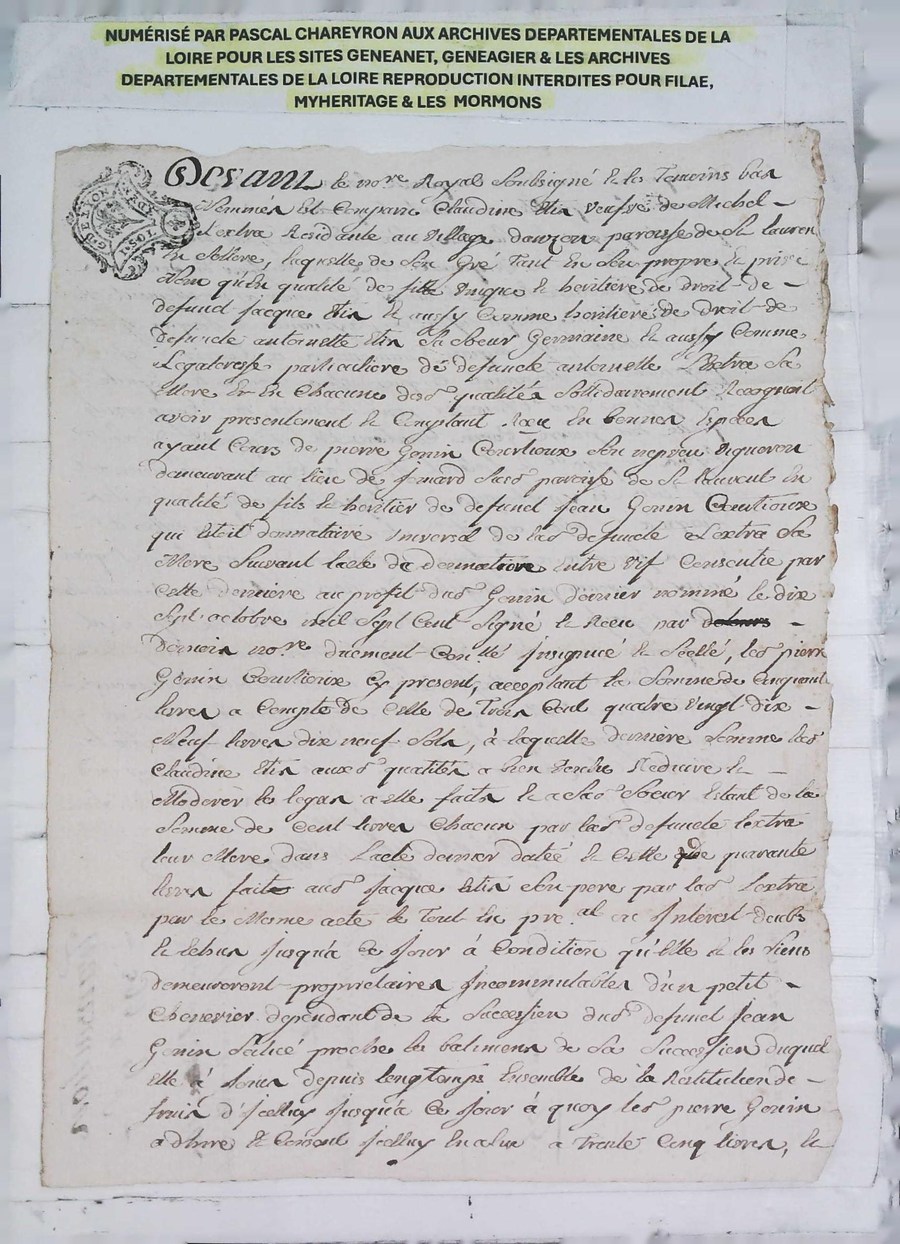 NUMÉRISÉ PAR PASCAL CHAREYRON AUX ARCHIVES DEPARTEMENTALES DE LA
LOIRE POUR LES SITES GENEANET, GENEAGIER & LES ARCHIVES
DEPARTEMENTALES DE LA LOIRE REPRODUCTION INTERDITES POUR FILAE,
MYHERITAGE & LES MORMONS
Devant le nore Royal Soubsigné & les Temoins bas
Nommés Est Comparu Claudine veufve de Michel
Lextra Residante au village paroisse de St lauren
laquelle de Son Gré Tant En Son propre & privé
Nom qu'En qualité de fille unique & heritiere de droit de
defunct jacque & aussy Comme heritiere de droit de
defuncte antoinette Sa Soeur Germaine & aussy Comme
Legateresse particuliere de defuncte antoinette Sa
Mere Et En Chacune des qualités Sollidairement
avoir presentement & Comptant Receu En bonnes Especes
ayant Cours de pierre Gonin Courtioux Son nepveu vigneron
demeurant au lieu de paroisse de St laurent En
qualité de fils & heritier de defunct jean Gonin Courtioux
qui Etoit donnataire universel de defuncte Lextra Sa
Mere Suivant lacte de donnation Entre vif Consentie par
Cette derniere au profit Gonin dernier nommé le dix
Sept octobre mil Sept Cent Signé & Receu par
nore duement jnsinué & Scellé, pierre
Gonin Courtioux Cy present, acceptant la Somme de Cinquante
livres a Compte de Celle de Trois Cent quatre vingt dix
Neuf livres dix neuf Sols, à laquelle derniere Somme
Claudine qualités a bien voulu Reduire &
Moderer les legas a elle faits & a Soeur Estant de la
Somme de Cent livres Chacun par defuncte Lextra
leur Mere dans Lacte dernier datté & Celle de quarante
livres faite jacque par Lextra
par le Meme acte le Tout En & Interest
jusqu'a Ce jour à Condition qu'Elle & les Siens
demeureront proprietaires jncommutables d'un petit
Chenevier dependant de la Succession defunct jean
Gonin Scitué proche les batimens de Sa Succession duquel
Elle à joui depuis longtemps Ensemble de la Restitution de
fruits d'jcelluy jusqu'a Ce jour à quoy pierre Gonin
adhere & Consent jcelluy a Trente Cinq livres, &